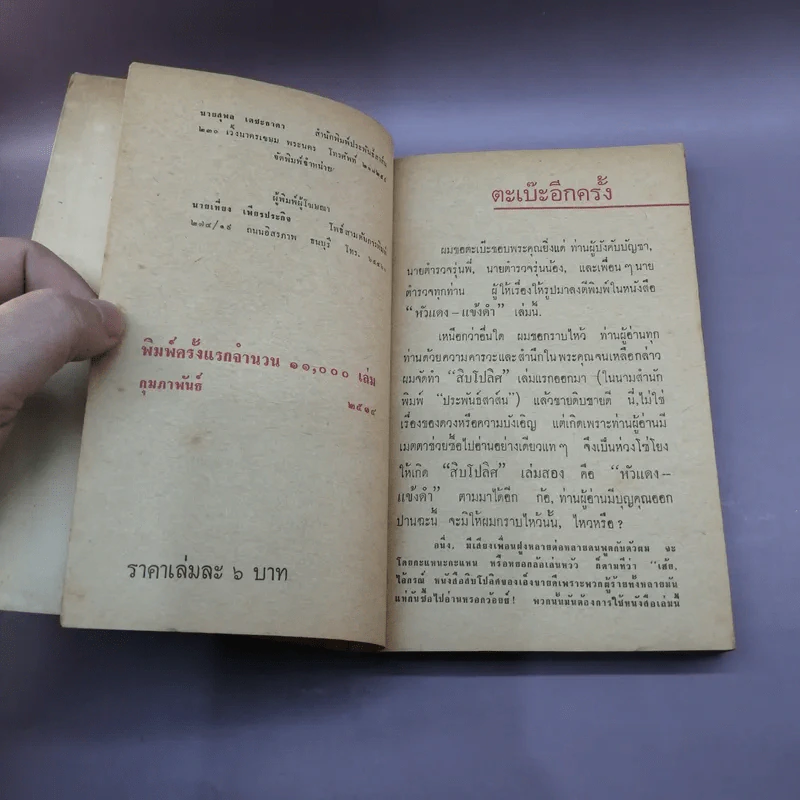 นายสุพล เตชะธาดา สำนักพิมพ์ประพันธ์สาส์น
๒๓๐ เวิ้งนาครเขษม พระนคร โทรศัพท์
จัดพิมพ์จำหน่าย
ผู้พิมพ์ผู้โฆษณา
นายเที่ยง เพียรประกิจ
๒๗๔/๑๙ ถนนอิสรภาพ ธนบุรี โทร.
พิมพ์ครั้งแรกจำนวน ๑๑,๐๐๐ เล่ม
กุมภาพันธ์
๒๕๑๔
ราคาเล่มละ ๖ บาท
ตะเบ๊ะอีกครั้ง
ผมขอตะเบ๊ะขอบพระคุณยิ่งแด่ ท่านผู้บังคับบัญชา,
นายตำรวจรุ่นพี่, นายตำรวจรุ่นน้อง, และเพื่อน ๆ นาย
ตำรวจทุกท่าน ผู้ให้เรื่องให้รูปมาลงตีพิมพ์ในหนังสือ
“หัวแดง–แข้งดำ” เล่มนี้
เหนือกว่าอื่นใด ผมขอกราบไหว้ ท่านผู้อ่านทุก
ท่านด้วยความคารวะและสำนึกในพระคุณจนเหลือกล่าว
ผมจัดทำ “สิบโปลิศ” เล่มแรกออกมา (ในนามสำนัก
พิมพ์ “ประพันธ์สาส์น”) แล้วขายดิบขายดี นี่,ไม่ใช่
เรื่องของดวงหรือความบังเอิญ แต่เกิดเพราะท่านผู้อ่านมี
เมตตาช่วยซื้อไปอ่านอย่างเดียวแท ๆ จึงเป็นห่วงโซ่โยง
ให้เกิด “สิบโปลิศ” เล่มสอง คือ “หัวแดง–
แข้งดำ” ตามมาได้อีก ก้อ, ท่านผู้อ่านมีบุญคุณออก
ปานฉะนี้ จะมิให้ผมกราบไหว้นั้น, ไหวหรือ ?
อนึ่ง, มีเสียงเพื่อนฝูงหลายต่อหลายคนพูดกับตัวผม จะ
โดยกะแหนะกะแหน หรือหยอกล้อเล่นหวัว ก็ตามทีว่า “เฮ้ย,
ไอ้กรณ์ หนังสือสิบโปลิศของเอ็งขายดีเพราะพวกผู้ร้ายทั้งหลายมัน
แห่กันซื้อไปอ่านหรอกว้อยย์ ! พวกนั้นมันต้องการใช้หนังสือเล่มนี้